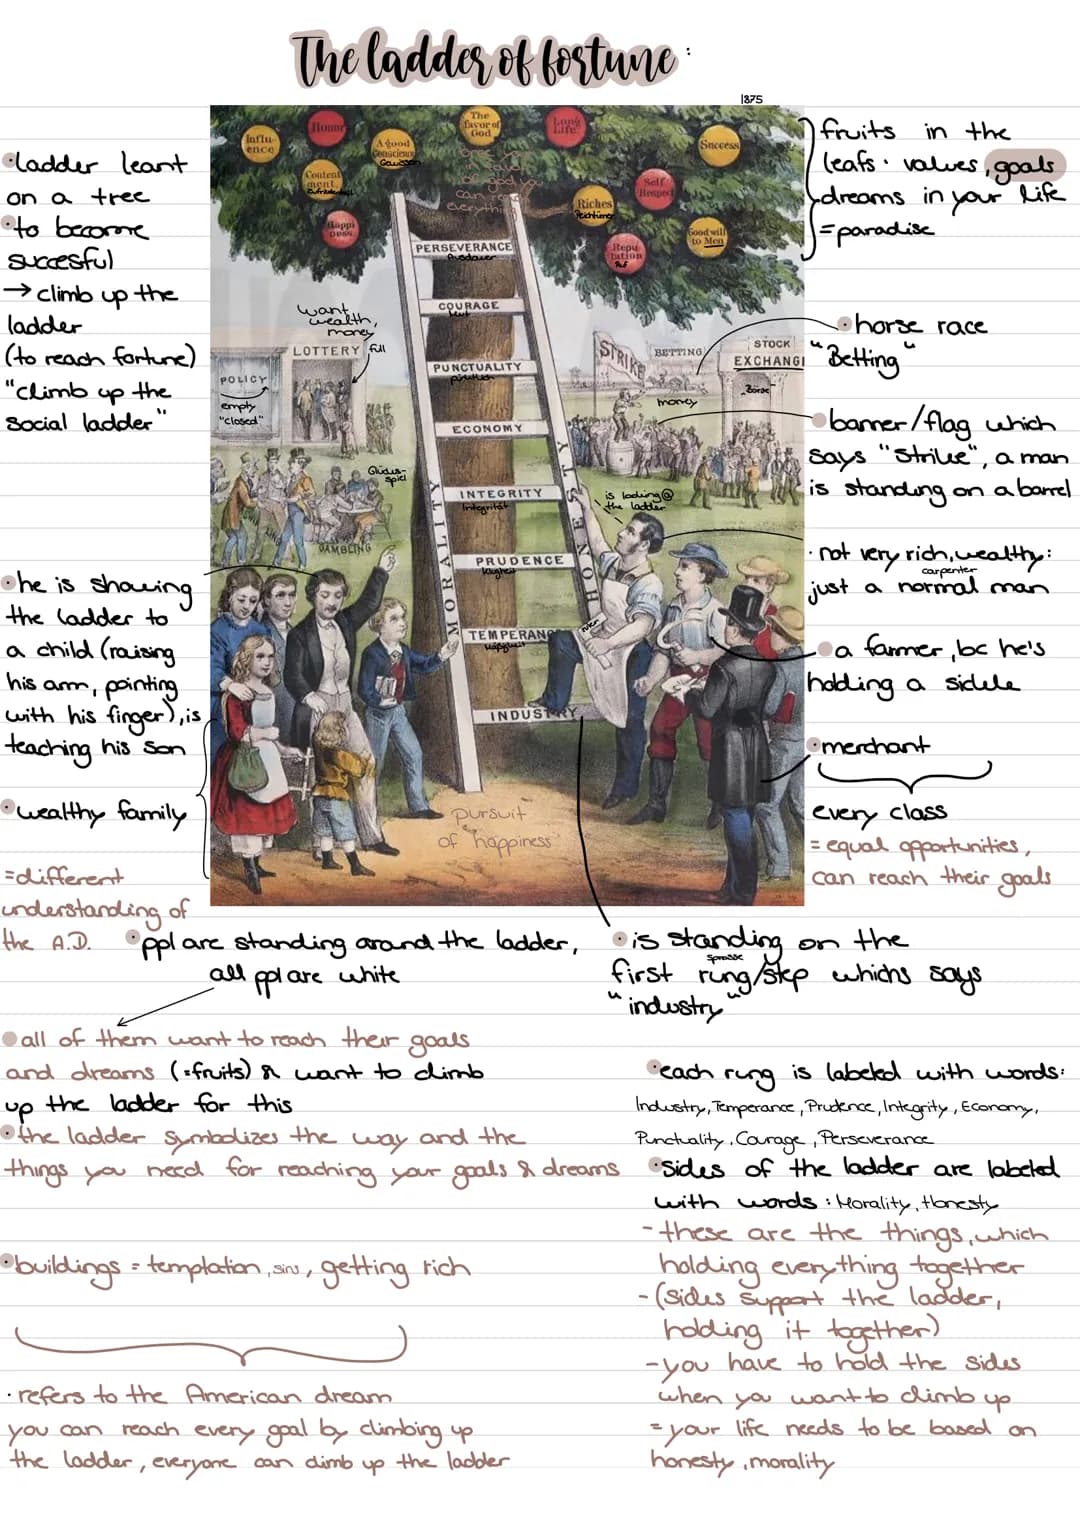 The ladder of fortune :
1875
•ladder leant
on a tree
•to become
succesful
→ climb up the
ladder
(to reach fortune)
"climb up the
social ladder"
•he is showing
the ladder to
a child (raising
his arm, pointing
with his finger), is
teaching his son
•wealthy family
=different
understanding of
the A.D.
Influ-
ence
Honor
A good
Conscience
Gewissen
The
favor of
God
Long
Life
Success
Content
ment
Zufriedenheit
Happi
ness
Self
Respect
Riches
Reichtümer
Repu
tation
Ruf
Good will
to Men
can
everything
PERSEVERANCE
Ausdauer
COURAGE
Mut
PUNCTUALITY
pünktlich
ECONOMY
INTEGRITY
Integrität
PRUDENCE
Klugheit
TEMPERANC
Mäßigkeit
INDUSTRY
MORALITY
HONESTY
want
wealth,
money
LOTTERY
full
POLICY
empty
"closed"
Glücks-
spiel
GAMBLING
STRIKE
BETTING
STOCK
EXCHANGE
Börse
money
is looking@
the ladder
pursuit
of happiness
fruits in the
leafs · values, goals
dreams in your life
=paradise
•horse race
"Betting"
•banner/flag which
says "Strike", a man
is standing on a barrel
· not very rich, wealthy:
carpenter
just a normal man
•a farmer, bc he's
holding a sickle
•merchant
every class
= equal opportunities,
can reach their goals
•ppl are standing around the ladder,
all ppl are white
•is standing on the
Sprosse
first rung/step whichs says
"industry"
•all of them want to reach their goals
and dreams (=fruits) & want to climb
up the ladder for this
•the ladder symbolizes the way and the
things you need for reaching your goals & dreams
•buildings = temptation, sins, getting rich
· refers to the American dream
you can reach every goal by climbing up
the ladder, everyone can climb up the ladder
•each rung is labeled with words:
Industry, Temperance, Prudence, Integrity, Economy,
Punctuality, Courage, Perseverance
•sides of the ladder are labeled
with words : Morality, Honesty
- these are the things, which
holding everything together
- (sides support the ladder,
holding it together)
- you have to hold the sides
when you want to climb up
= your life needs to be based on
honesty, morality